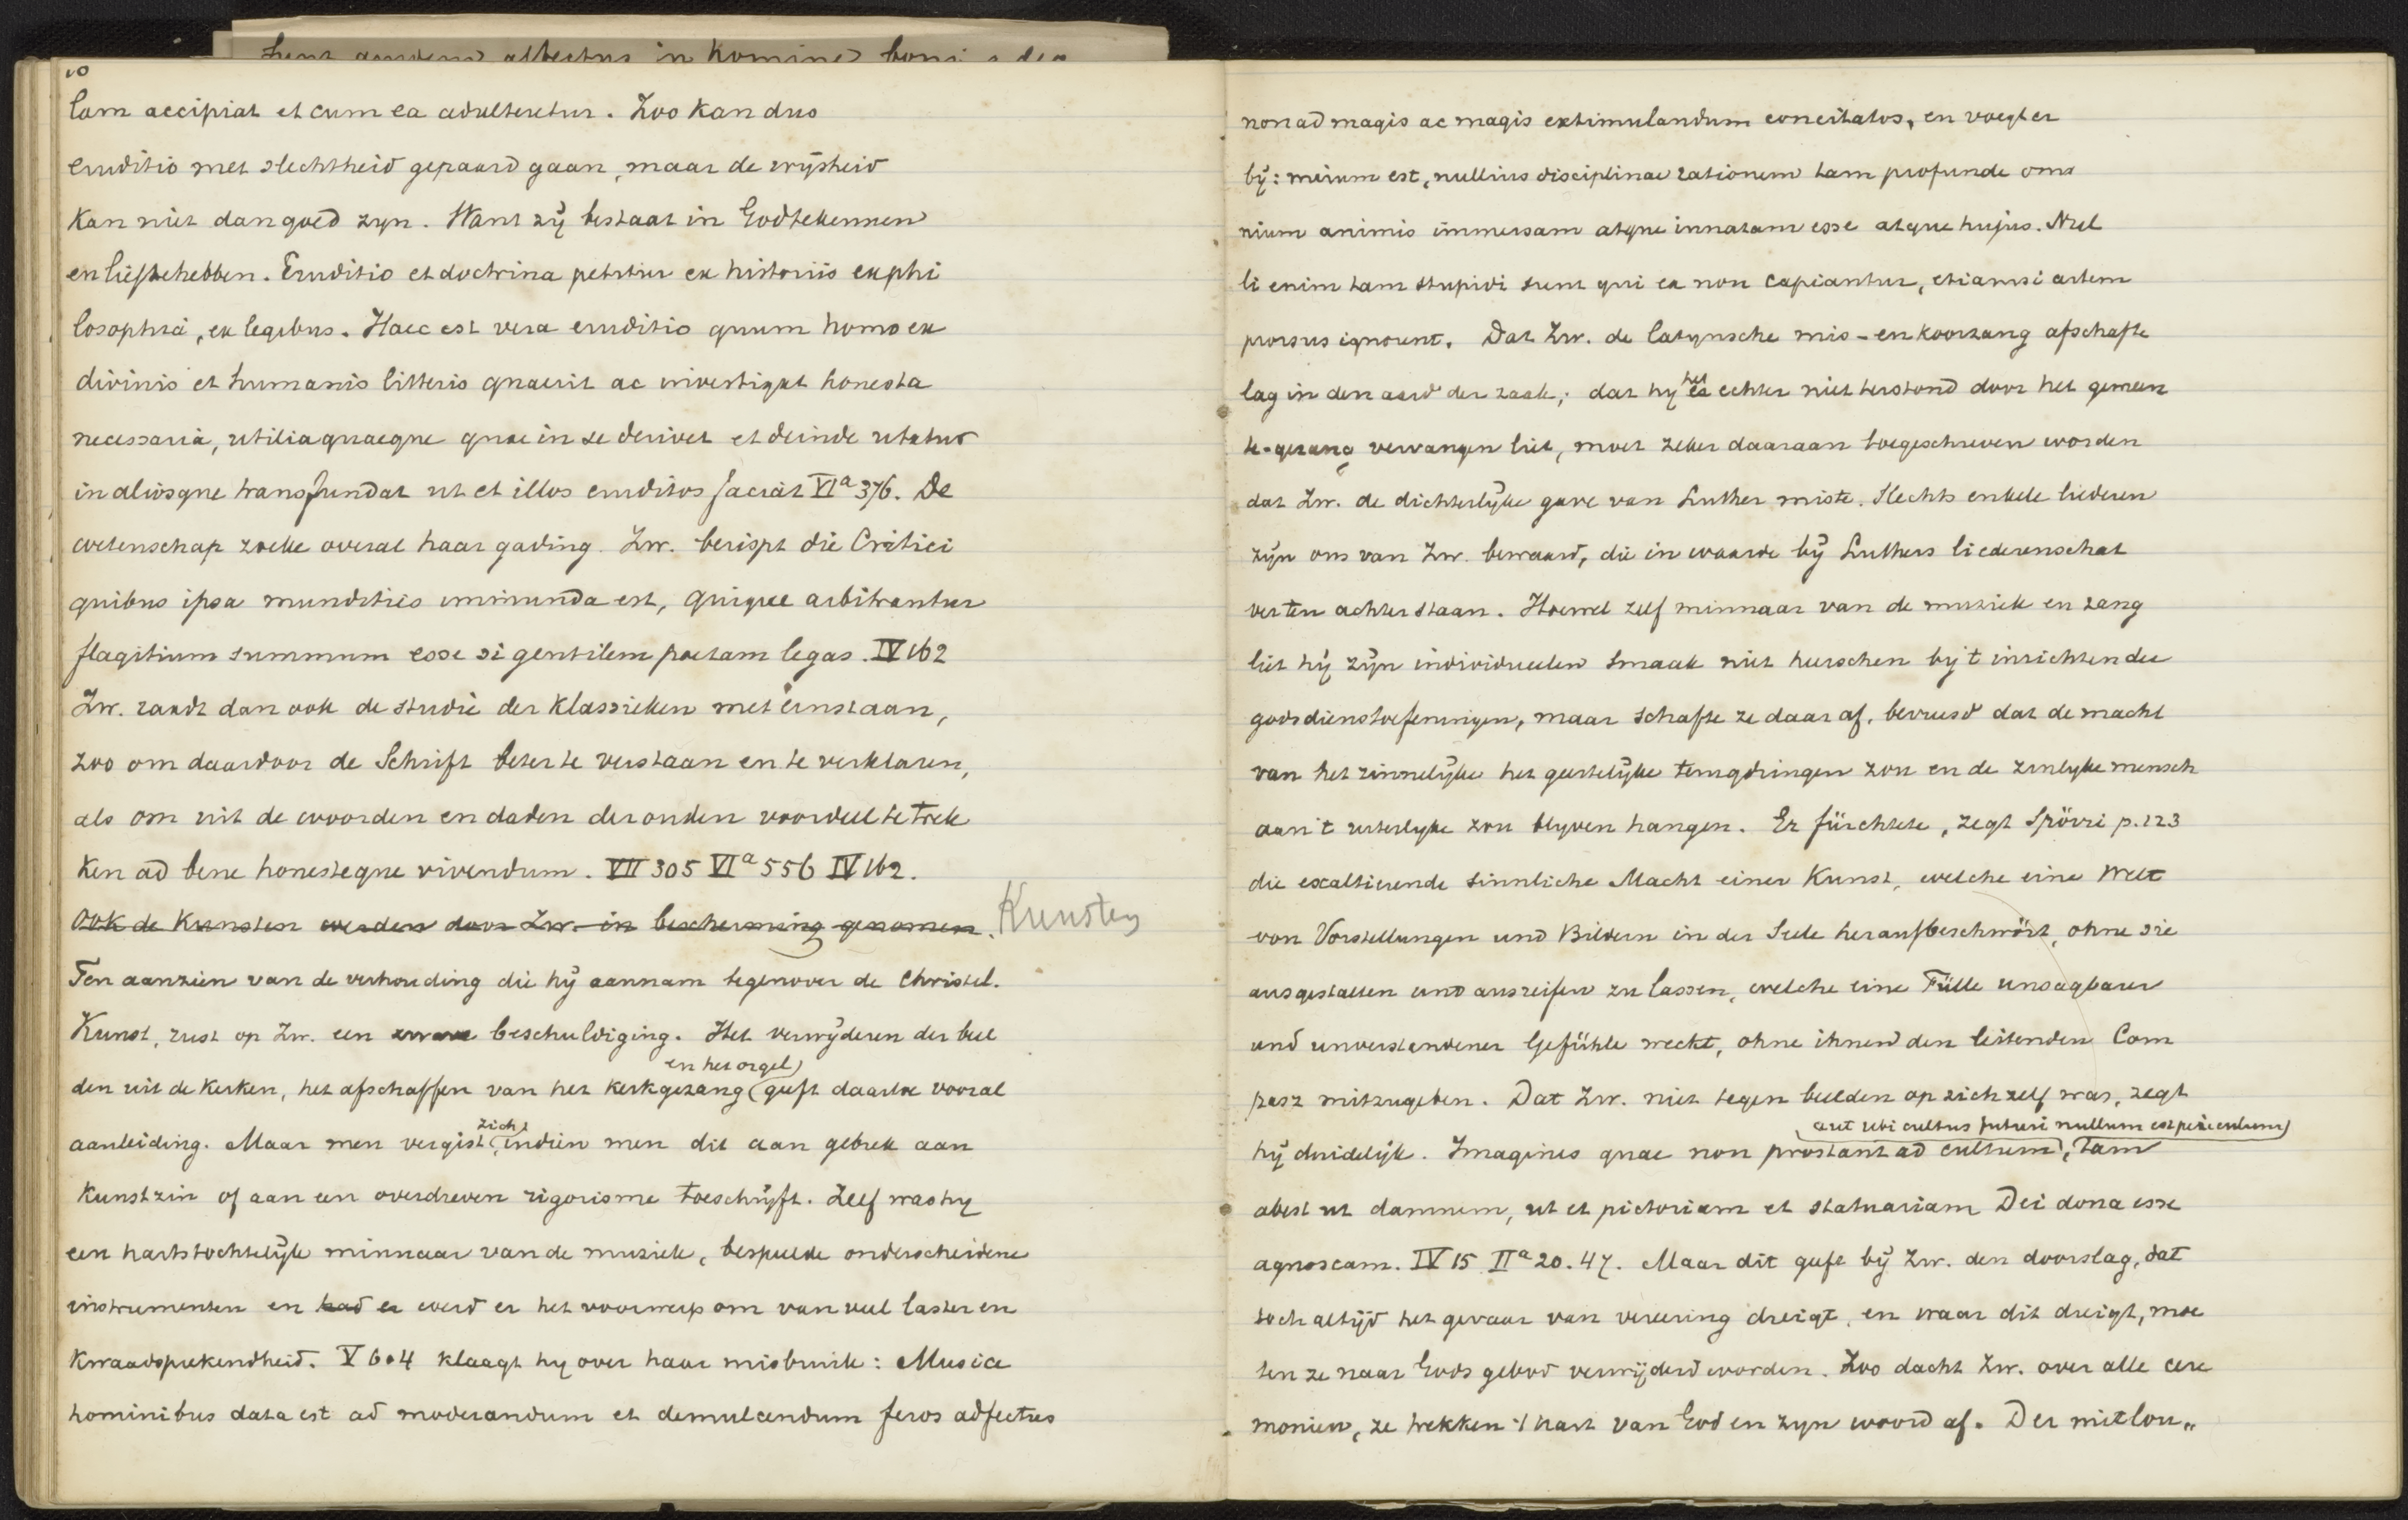 10
lam accipiat et cum ea adulteretur. Zoo kan dus
eruditio met slechtheid gepaard gaan, maar de wijsheid
kan niet dan goed zyn. Want zij bestaat in God te kennen
en lief te hebben. Eruditio et doctrina petitur ex historiis ex phi
losophia, ex legibus. Haec est vera eruditio quum homo ex
divinis et humanis litteris quaerit ac investigat honesta
necessaria, utilia quaeque quae in se derivet et deinde utatur
in aliosque transfundat ut et illos eruditos faciat VIa 376. De
wetenschap zoeke overal haar gading. Zw. berispt die Critici
quibus ipsa mundities immunda est, quique arbitrantur
flagitium summum esse si gentilem poetam legas. IV 162
Zw. raadt dan ook de studie der klassieken met ernst aan,
zoo om daardoor de Schrift beter te verstaan en te verklaren,
als om uit de woorden en daden der ouden voordeel te trek
ken ad bene honesteque vivendum. VII 305 VIa 556 IV 162.
Ook de Kunsten werden door Zw. in bescherming genomen. Kunsten
Ten aanzien van de verhouding die hij aannam tegenover de Christel.
Kunst, rust op Zw. een zware beschuldiging. Het verwijderen der beel
en het orgel
den uit de kerken, het afschaffen van het kerkgezang geeft daartoe vooral
zich
aanleiding. Maar men vergist, indien men dit aan gebrek aan
kunstzin of aan een overdreven rigorisme toeschrijft. Zelf was hy
een hartstochtelijk minnaar van de muziek, bespeelde onderscheidene
instrumenten en had er werd er het voorwerp om van veel laster en
kwaadsprekendheid. V 604 klaagt hy over haar misbruik: Musica
hominibus data est ad moderandum et demulcendum feros adfectus
non ad magis ac magis extimulandum concitatos, en voegt er
bij: mirum est, nullius disciplinae rationem tam profunde om
nium animis immersam atque innatam esse atque hujus. Nul
li enim tam stupidi sunt qui ea non capiantur, etiamsi artem
prorsus ignorent. Dat Zw. de latynsche mis- en koorzang afschafte
het
lag in den aard der zaak; dat hy es echter niet terstond door het gemeen
te-gezang vervangen liet, moet zeker daaraan toegeschreven worden
dat Zw. de dichterlijke gave van Luther miste. Slechts enkele liederen
zijn ons van Zw. bewaard, die in waarde bij Luthers liederenschat
ver ten achter staan. Hoewel zelf minnaar van de muziek en zang
liet hij zijn individueelen smaak niet heerschen bij 't inrichten der
godsdienstoefeningen, maar schafte ze daar af, bevreesd dat de macht
van het zinnelijke het geestelijke terugdringen zou en de zinlyke mensch
aan 't uiterlyke zou blyven hangen. Er fürchtete, zegt Spörri p. 123
die exaltierende sinnliche Macht einer Kunst, welche eine Welt
von Vorstellungen und Bildern in der Seele heraufbeschwört, ohne sie
ausgestalten und ausreifen zu lassen, welche eine Fülle unsagbarer
und unverstandener Gefühle weckt, ohne ihnen den leitenden Com
pasz mitzugeben. Dat Zw. niet tegen beelden op zich zelf was, zegt
aut ubi cultus futuri nullum est periculum
hij duidelijk. Imagines quae non prostant ad cultum, tam
abest ut damnem, ut et pictoriam et statuariam Dei dona esse
agnoscam. IV 15 IIa 20. 47. Maar dit gaf bij Zw. den doorslag, dat
toch altijd het gevaar van vereering dreigt, en waar dit dreigt, moe
ten ze naar Gods gebod verwijderd worden. Zoo dacht Zw. over alle cere
monien, ze trekken 't hart van God en zyn woord af. Der mitlou"